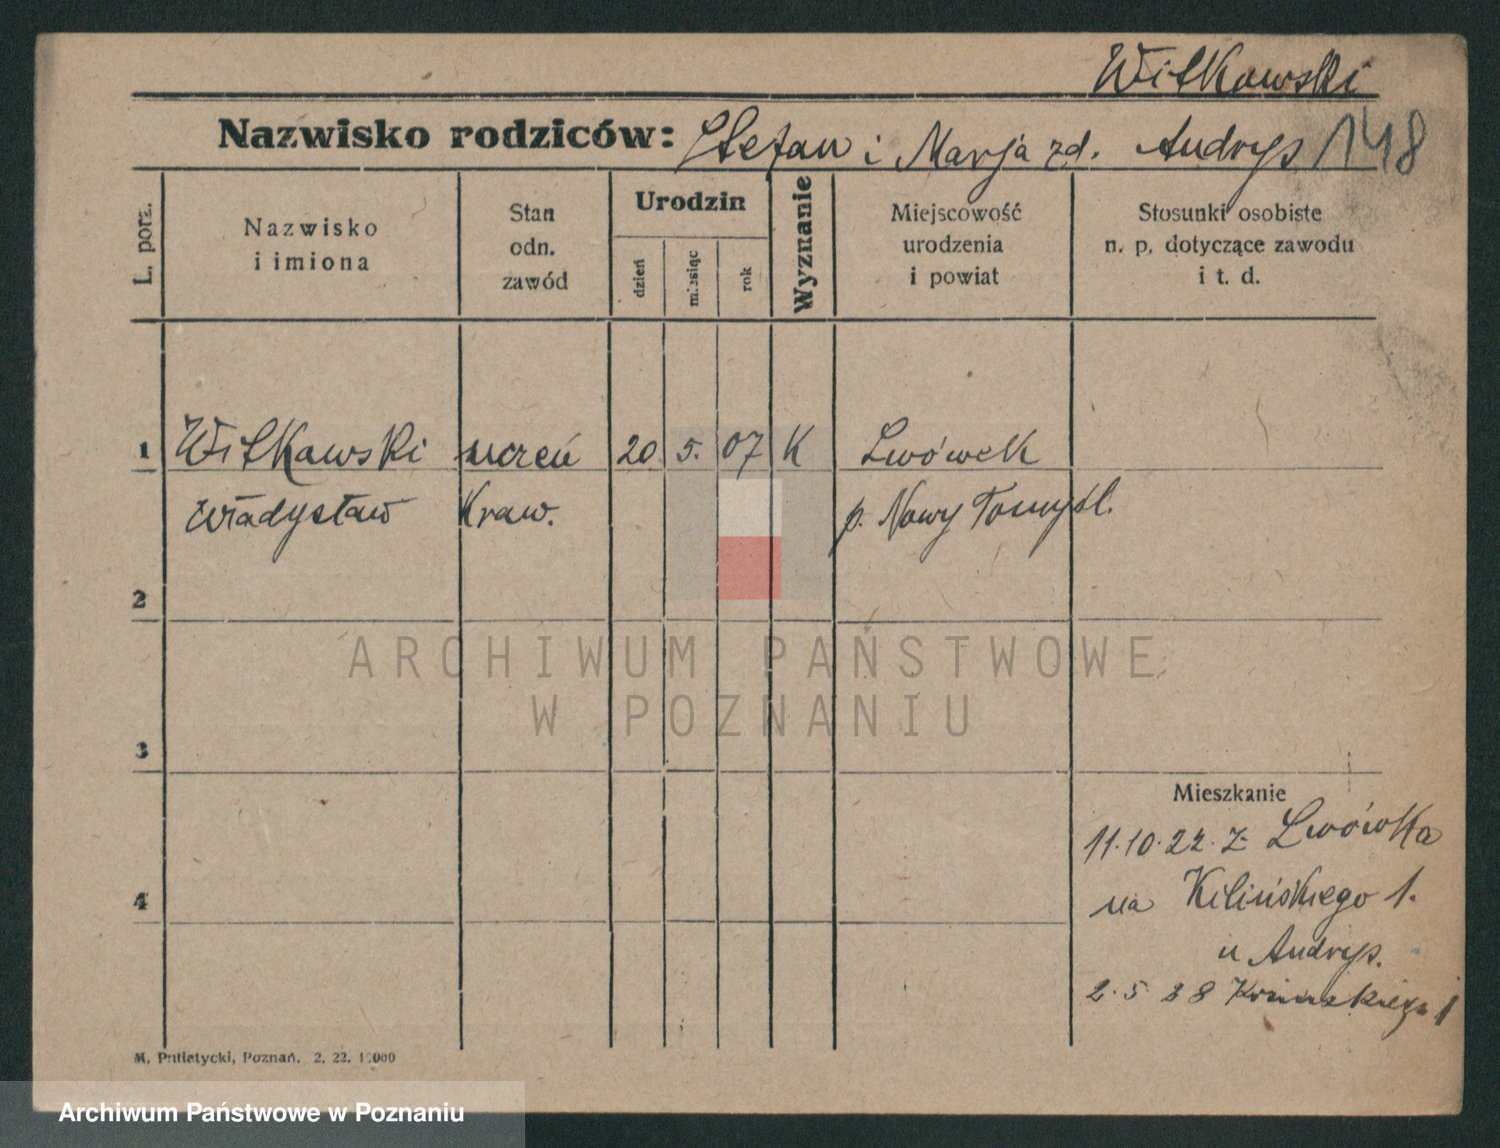 Witkowski
Nazwisko rodziców: Stefan i Marja zd. Andrys 148
L. porz.
Nazwisko
i imiona
Stan
odn.
zawód
Urodzin
dzień
miesiąc
rok
Wyznanie
Miejscowość
urodzenia
i powiat
Stosunki osobiste
n. p. dotyczące zawodu
i t. d.
1 Witkowski uczeń 20 5. 07 K Lwówek
Władysław Kraw. p. Nowy Tomyśl.
2
ARCHIWUM PAŃSTWOWE
W POZNANIU
3
Mieszkanie
11.10.22. z Lwówka
4
na Kilińskiego 1.
u Andrys.
2.5 28
M. Putiatycki, Poznań. 2. 22. 1000
Archiwum Państwowe w Poznaniu